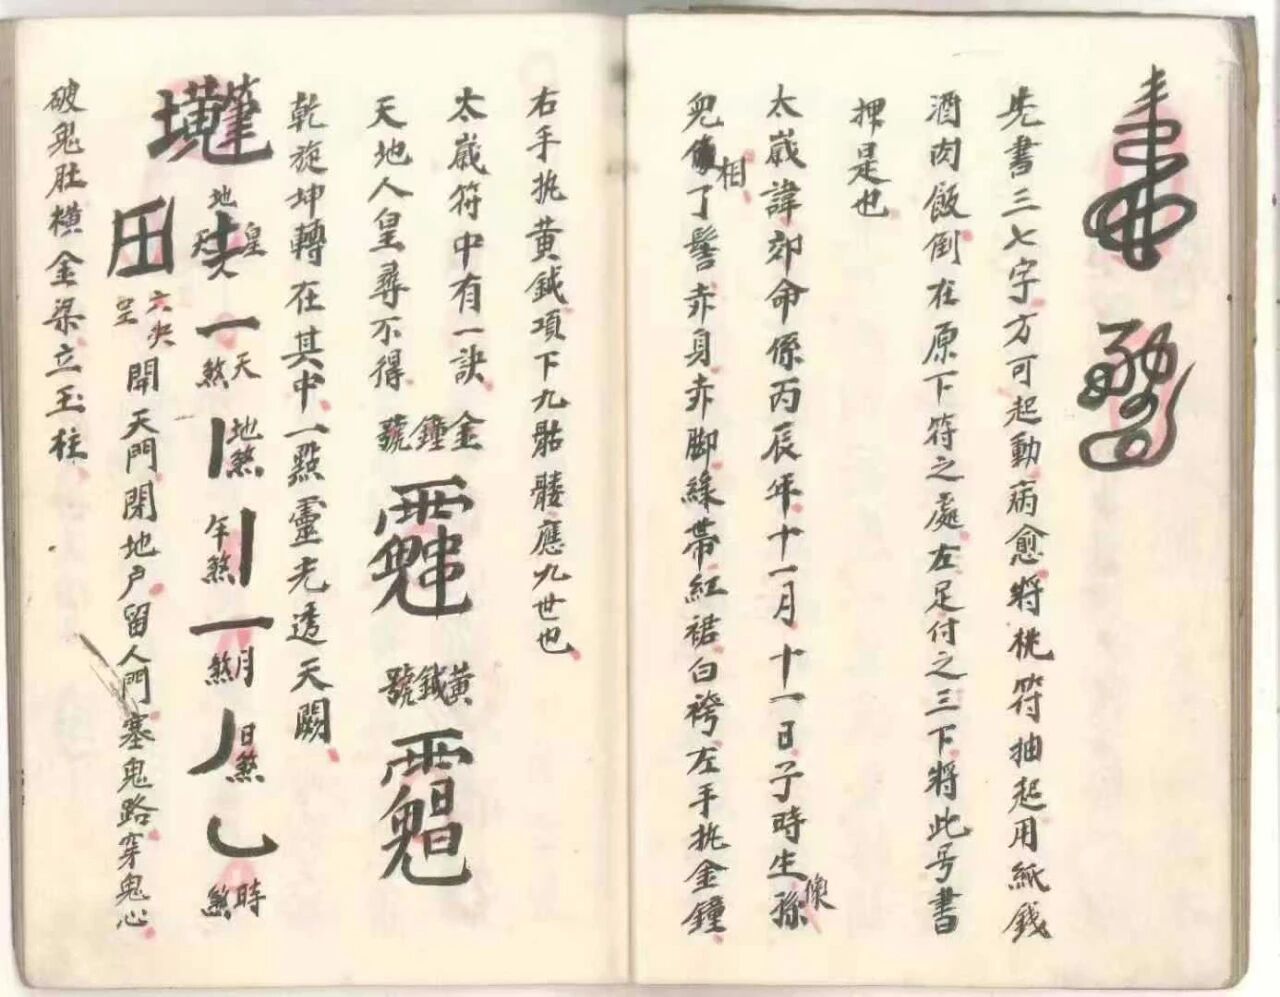 先書三七字方可起動病愈將桃符抽起用紙錢
酒肉飯倒在原下符之處左足付之三下將此号書
押是也
太歲諱郊命係丙辰年十一月十一日子時生孫
像
児
相
了髻赤身赤脚綠帶紅裙白袴左手执金鐘
右手执黃鉞項下九骷髏應九世也
太歲符中有一訣
金鐘號
黃鉞號
天地人皇尋不得
乾旋坤轉在其中一點靈光透天闕
地
皇
天
一
天煞
地煞
年煞
一
月煞
日煞
時煞
六尖
開天門閉地户留人門塞鬼路穿鬼心
破鬼肚橫金梁立玉柱